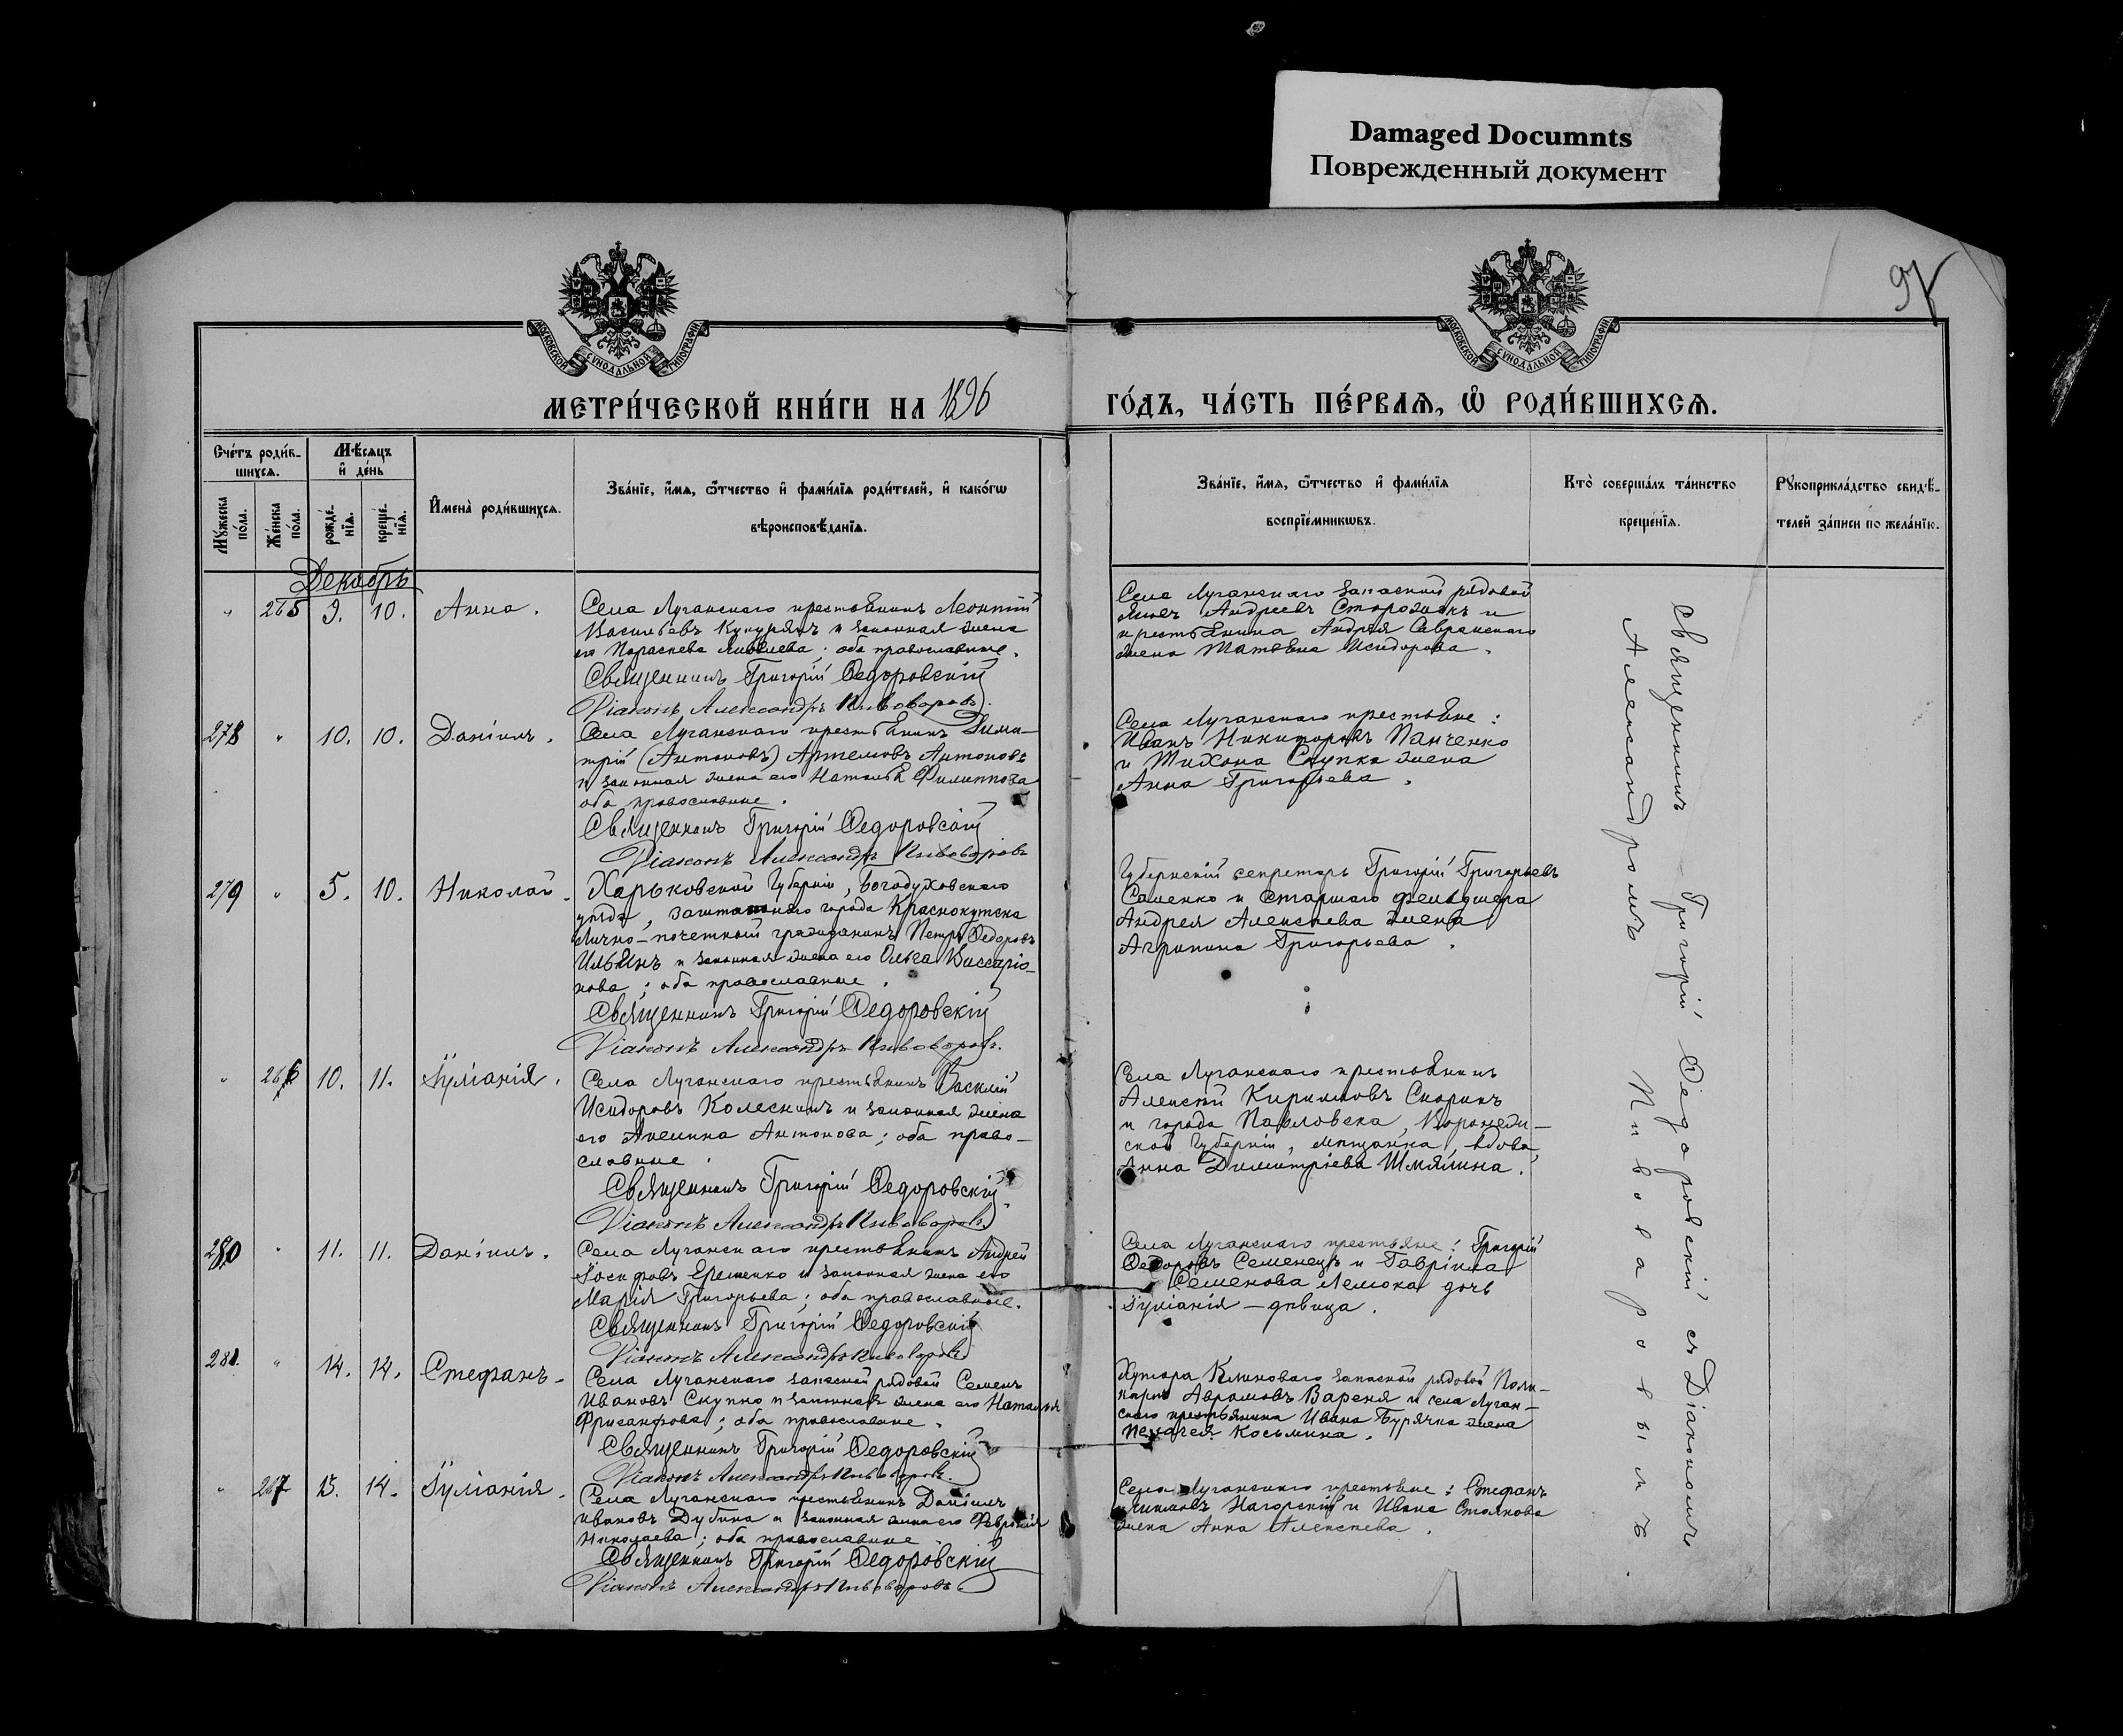 Damaged Documnts
Поврежденный документ
97
МОСКОВСКОЙ СУНОДАЛЬНОЙ ТИПОГРАФІИ
МОСКОВСКОЙ СУНОДАЛЬНОЙ ТИПОГРАФІИ
МЕТРИ́ЧЕСКОЙ КНИ́ГИ НА 1896
ГО́ДЪ, ЧА́СТЬ ПЕ́РВАѦ, Ѡ҆ РОДИ́ВШИХСѦ.
Сче́тъ роди́в-
шихсѧ.
Мѣ́сѧцъ
и҆ де́нь
Мꙋ́жеска
по́ла.
Же́нска
по́ла.
рожде́-
нїѧ.
креще́-
нїѧ.
И҆мена̀ роди́вшихсѧ.
Зва́нїе, и҆́мѧ, ѻ҆́тчество и҆ фами́лїѧ роди́телей, и҆ како́гѡ
вѣроисповѣ́данїѧ.
Зва́нїе, и҆́мѧ, ѻ҆́тчество и҆ фами́лїѧ
воспрїе́мникѡвъ.
Кто̀ соверша́лъ та́инство
креще́нїѧ.
Рꙋкоприкла́дство свидѣ́-
телей за́писи по жела́нїю.
Декабрь
" 265 9. 10. Анна.
Села Луганскаго крестьянинъ Леонтій
Васильевъ и законная жена
его Параскева Яковлева; оба православные.
Священникъ Григорій Федоровскій
Діаконъ Александръ Пивоваровъ.
Села Луганскаго запасный рядовой
Андреевъ Сторожокъ и
крестьянина Андрея Савранскаго
жена Татьяна Исидорова.
278 " 10. 10. Даніилъ.
Села Луганскаго крестьянинъ Дими-
трій (Антоновъ) Артемовъ Антоновъ
и законная жена его Наталья Филиппова
оба православные.
Священникъ Григорій Федоровскій
Діаконъ Александръ Пивоваровъ
Села Луганскаго крестьяне:
Иванъ Никифоровъ Панченко
и Тихона Скупка жена
Анна Григорьева.
279 " 5. 10. Николай.
Харьковской Губерніи, Богодуховскаго
уѣзда, заштатнаго города Краснокутска
Лично-почетный гражданинъ Петръ Федоровъ
Ильинъ и законная жена его Ольга Виссаріо-
нова; оба православные.
Священникъ Григорій Федоровскій
Діаконъ Александръ Пивоваровъ.
Губернскій секретарь Григорій Григорьевъ
Саменко и старшаго фельдшера
Андрея Алексѣева жена
Агрипина Григорьева.
" 266 10. 11. Іуліанія.
Села Луганскаго крестьянинъ Василій
Исидоровъ Колесникъ и законная жена
его Акилина Антонова; оба право-
славные.
Священникъ Григорій Федоровскій
Діаконъ Александръ Пивоваровъ.
Села Луганскаго крестьянинъ
Алексѣй Кириловъ Скорикъ
и города Павловска, Воронеж-
ской Губерніи, мѣщанка, вдова
Анна Димитріева Шмялина.
280 " 11. 11. Даніилъ.
Села Луганскаго крестьянинъ Андрей
Іосифовъ Еременко и законная жена его
Марія Григорьева; оба православные.
Священникъ Григорій Федоровскій
Діаконъ Александръ Пивоваровъ
Села Луганскаго крестьяне: Григорій
Федоровъ Семенецъ и Гавріила
Семенова Лемока дочь
Іуліанія — дѣвица.
281. " 14. 14. Стефанъ.
Села Луганскаго запасной рядовой Семенъ
Ивановъ Скупко и законная жена его Наталья
Фрисанфова; оба православные.
Священникъ Григорій Федоровскій
Діаконъ Александръ Пивоваровъ.
Хутора Клиноваго запасной рядовой Поли-
карпъ Аврамовъ Вареня и села Луган-
скаго крестьянина Ивана Бурячка жена
Пелагея Косьмина.
" 267 13. 14. Іуліанія.
Села Луганскаго крестьянинъ Даніилъ
Ивановъ Дубина и законная жена его Февронія
Николаева; оба православные
Священникъ Григорій Федоровскій
Діаконъ Александръ Пивоваровъ.
Села Луганскаго крестьяне: Стефанъ
Нагорскій и Ивана Стоянова
жена Анна Алексѣева.
Священникъ Григорій Федоровскій съ Діакономъ
Александромъ Пивоваровымъ.